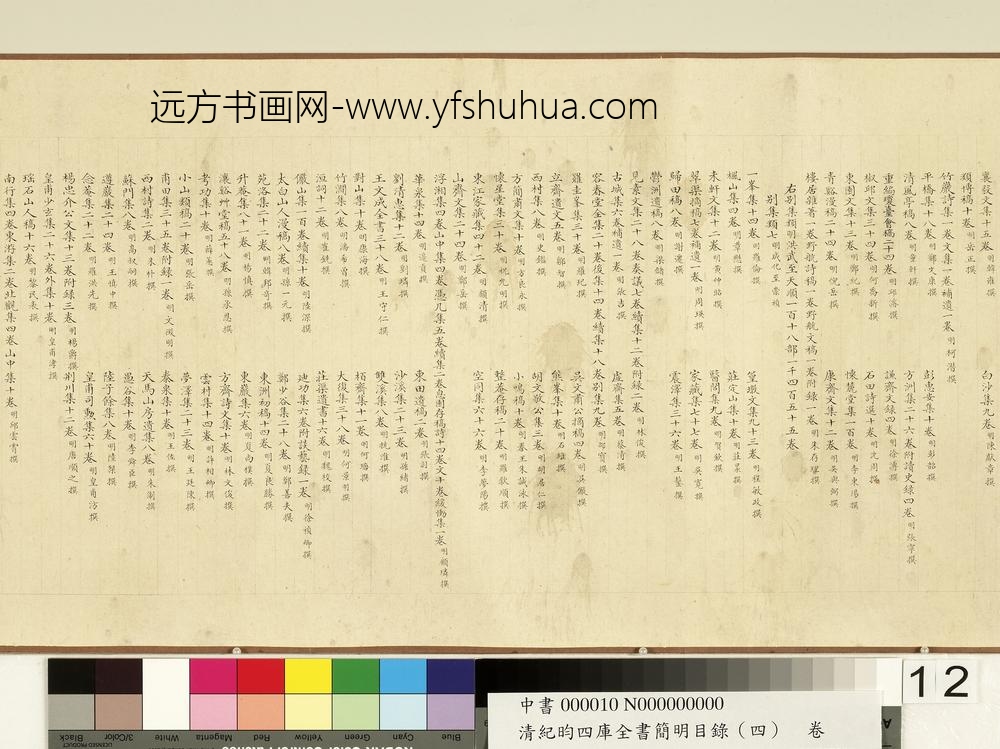 远方书画网-www.yfshuhua.com
襄毅文集十五卷 明韓雍撰 白沙集九卷 明陳獻章撰
類博稿十卷 明岳正撰
竹巖詩集一卷文集一卷補遺一卷 明柯潛撰
平橋集十八卷 明鄭文康撰 彭惠安集十卷 明彭韶撰
清風亭稿八卷 明童軒撰 方洲集二十六卷附讀史錄四卷 明張寧撰
重編瓊臺會稿二十四卷 明邱濬撰 謙齋文錄四卷 明徐溥撰
椒邱文集三十四卷 明何喬新撰 石田詩選十卷 明沈周撰
東園文集十三卷 明鄭紀撰 懷麓堂集一百卷 明李東陽撰
青谿漫稿二十四卷 明倪岳撰 康齋文集十二卷 明吳與弼撰
樓居雜著一卷野航詩稿一卷野航文稿一卷附錄一卷 明朱存理撰
右別集類明洪武至天順一百十八部一千四百五十五卷
別集類七 明成化至崇禎
一峯集十四卷 明羅倫撰 篁墩文集九十三卷 明程敏政撰
楓山集四卷 明章懋撰 莊定山集十卷 明莊㫤撰
未軒文集十二卷 明黃仲昭撰 醫閭集九卷 明賀欽撰
翠渠摘稿七卷補遺一卷 明周瑛撰 家藏集七十七卷 明吳寬撰
歸田稿八卷 明謝遷撰 震澤集三十六卷 明王鏊撰
鬱洲遺稿八卷 明梁儲撰
見素文集二十八卷奏議七卷續集十二卷附錄二卷 明林俊撰
古城集六卷補遺一卷 明張吉撰 虛齋集五卷 明蔡清撰
容春堂全集二十卷後集十四卷續集十八卷別集九卷 明邵寶撰
羅圭峯集三十卷 明羅玘撰 吳文肅公摘稿四卷 明吳儼撰
立齋遺文五卷 明鄒智撰 熊峯集十卷 明石珤撰
西村集八卷 明史鑑撰 胡文敬公集三卷 明胡居仁撰
方簡肅文集十卷 明方良永撰 小鳴稿十卷 明秦王誠泳撰
懷星堂集三十卷 明祝允明撰 整菴存稿二十卷 明羅欽順撰
東江家藏集四十二卷 明顧清撰 空同集六十六卷 明李夢陽撰
山齋文集二十四卷 明鄭岳撰
浮湘集四卷山中集四卷憑几集五卷續集二卷息園存稿詩十四卷文十卷緩慟集一卷 明顧璘撰
華泉集十四卷 明邊貢撰 東田遺稿二卷 明張羽撰
劉清惠集十二卷 明劉麟撰 沙溪集二十三卷 明孫緒撰
王文成全書三十八卷 明王守仁撰 雙溪集八卷 明杭淮撰
對山集十卷 明康海撰 栢齋集十一卷 明何瑭撰
竹澗集八卷 明潘希曾撰 大復集三十八卷 明何景明撰
洹詞十二卷 明崔銑撰 莊渠遺書十六卷 明魏校撰
儼山集一百卷續集十卷 明陸深撰 迪功集六卷附談藝錄一卷 明徐禎卿撰
太白山人漫稿八卷 明孫一元撰 鄭少谷集二十八卷 明鄭善夫撰
苑洛集二十二卷 明韓邦奇撰 東洲初稿十四卷 明夏良勝撰
升菴集八十一卷 明楊慎撰 東巖集六卷 明夏尚樸撰
瀼谿艸堂稿五十八卷 明孫承恩撰 方齋詩文集十卷 明林文俊撰
考功集十卷 明薛蕙撰 雲村集十四卷 明許相卿撰
小山類稿二十卷 明張岳撰 夢澤集二十三卷 明王廷陳撰
甫田集三十五卷附錄一卷 明文徵明撰 泰泉集十卷 明王佐撰
西村詩集二卷 明朱朴撰 天馬山房遺集八卷 明朱淛撰
蘇門集八卷 明高叔嗣撰 愚谷集十卷 明李舜臣撰
遵巖集二十四卷 明王慎中撰 陸子餘集八卷 明陸粲撰
念菴集二十二卷 明羅洪先撰 皇甫司勳集六十卷 明皇甫汸撰
楊忠介公文集十三卷附錄三卷 明楊爵撰 荊川集十二卷 明唐順之撰
皇甫少玄集二十六卷外集十卷 明皇甫涍撰
瑤石山人稿十六卷 明黎民表撰
南行集四卷東游集二卷北觀集四卷山中集十卷 明邱雲霄撰
Black 3/Color White Magenta Red Yellow Green Cyan Blue
12
中書 000010 N000000000
清紀昀四庫全書簡明目錄（四） 卷